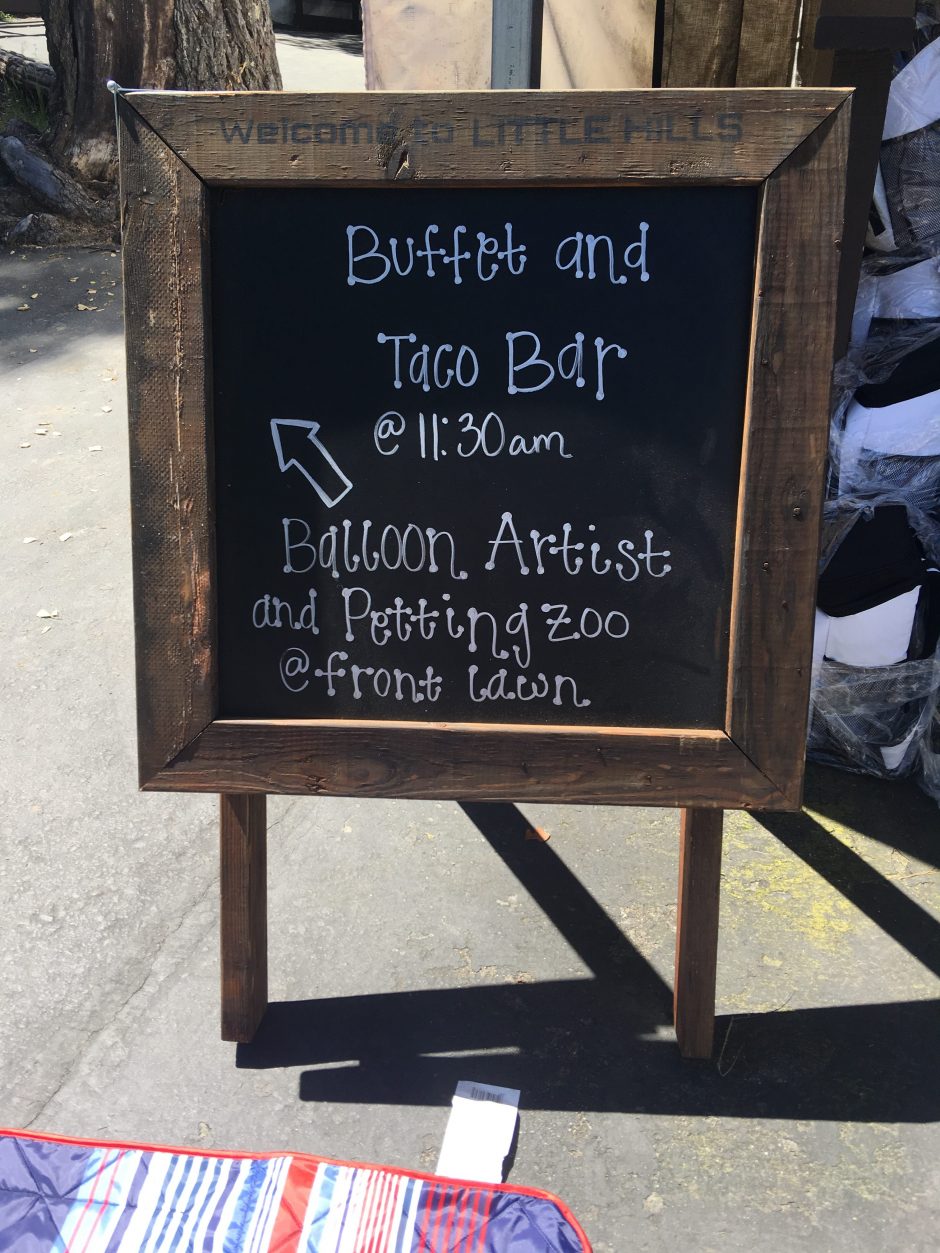 Welcome to LITTLE HILLS
Buffet and
Taco Bar
@ 11:30am
Balloon Artist
and Petting Zoo
@ front lawn